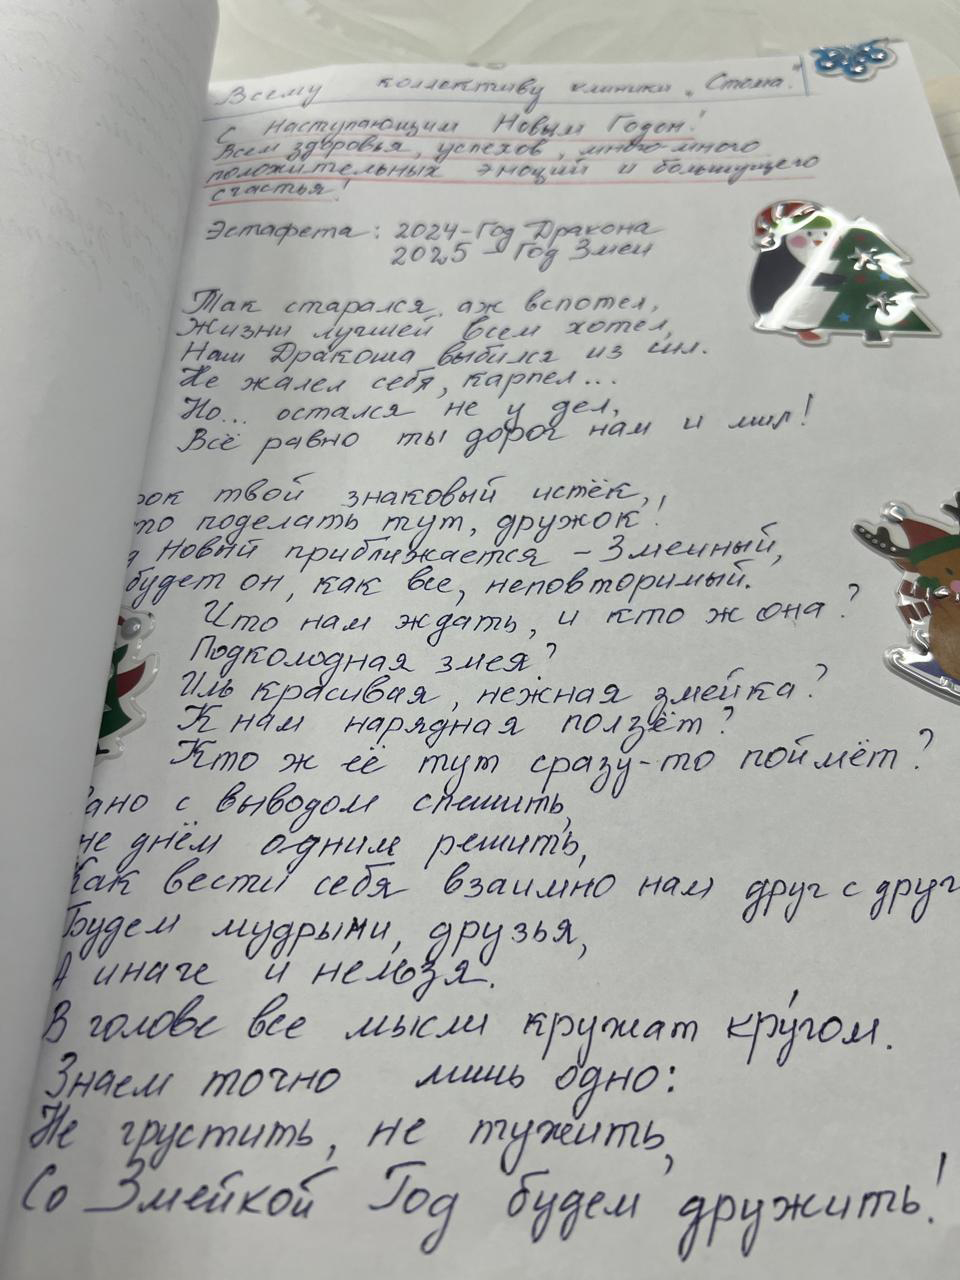 Всему коллективу клиники „Стома."
С Наступающим Новым Годом!
Всем здоровья, успехов, много-много
положительных эмоций и большущего
счастья!
Эстафета: 2024-Год Дракона
2025 - Год Змеи
Так старался, аж вспотел,
Жизни лучшей всем хотел,
Наш Дракоша выбился из сил.
Не жалел себя, карпел...
Но... остался не у дел,
Всё равно ты дорог нам и мил!
рок твой знаковый истёк,
то поделать тут, дружок!
Новый приближается - Змеиный,
будет он, как все, неповторимый.
Что нам ждать, и кто ж она?
Подколодная змея?
Иль красивая, нежная змейка?
К нам нарядная ползёт?
Кто ж её тут сразу-то поймёт?
ано с выводом спешить,
не днём одним решить,
Как вести себя взаимно нам друг с друг
Будем мудрыми, друзья,
А иначе и нельзя.
В голове все мысли кружат кру́гом.
Знаем точно лишь одно:
Не грустить, не тужить,
Со Змейкой Год будем дружить!